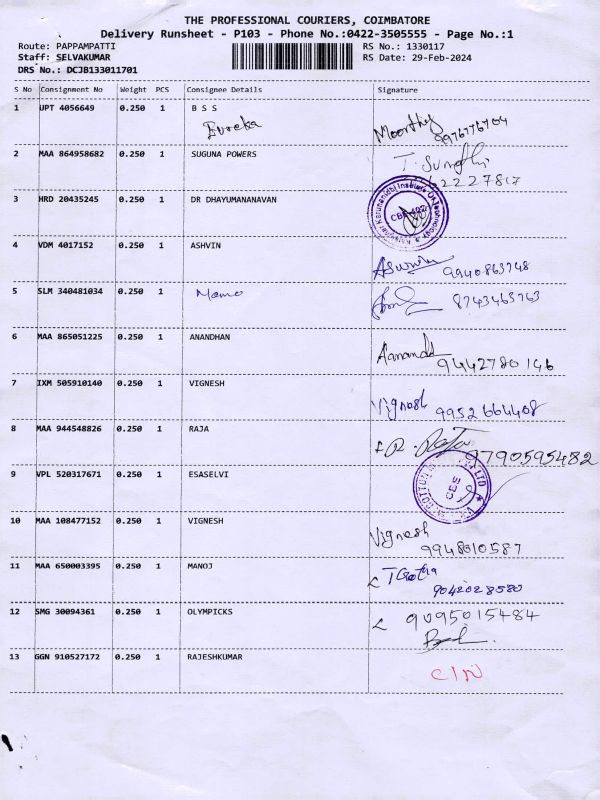 THE PROFESSIONAL COURIERS, COIMBATORE
Delivery Runsheet - P103 - Phone No.:0422-3505555 - Page No.:1
Route: PAPPAMPATTI RS No.: 1330117
Staff: SELVAKUMAR RS Date: 29-Feb-2024
DRS No.: DCJB133011701
S No Consignment No Weight PCS Consignee Details Signature
1 UPT 4056649 0.250 1 B S S
Eureka Moorthy 9976776704
2 MAA 864958682 0.250 1 SUGUNA POWERS
3 HRD 20435245 0.250 1 DR DHAYUMANANAVAN
4 VDM 4017152 0.250 1 ASHVIN
9940863748
5 SLM 340481034 0.250 1 8743463763
6 MAA 865051225 0.250 1 ANANDHAN
9442780146
7 IXM 505910140 0.250 1 VIGNESH
Vignesh 9952664408
8 MAA 944548826 0.250 1 RAJA
9790595482
9 VPL 520317671 0.250 1 ESASELVI
10 MAA 108477152 0.250 1 VIGNESH
Vignesh
9948010587
11 MAA 650003395 0.250 1 MANOJ
9042028580
12 SMG 30094361 0.250 1 OLYMPICKS
9095015484
13 GGN 910527172 0.250 1 RAJESHKUMAR